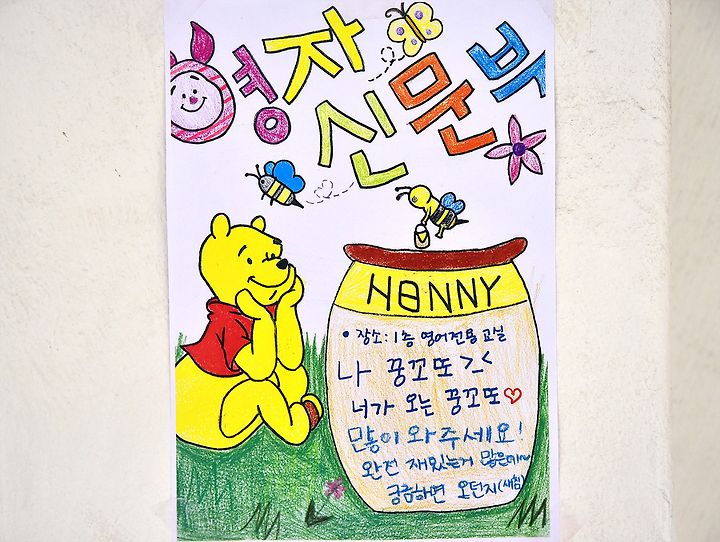 영자
신문부
HONNY
• 장소: 1층 영어전용 교실
나 꿍꼬또 >_<
너가 오는 꿍꼬또♡
많이 와주세요!
완전 재밌는거 많은데~
궁금하면 오던지(새침)